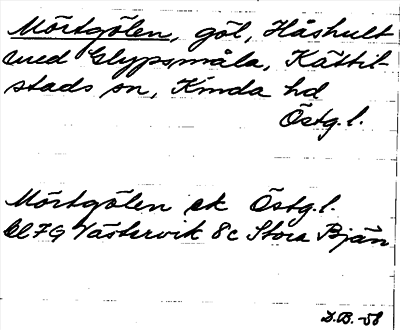 Mörtgölen, göl, Håshult
med Glypsmåla, Kättil-
stads sn, Kinda hd
Östg.l.
Mörtgölen ek Östg.l.
7G Västervik 8c Stora Bjän
D.B. -58